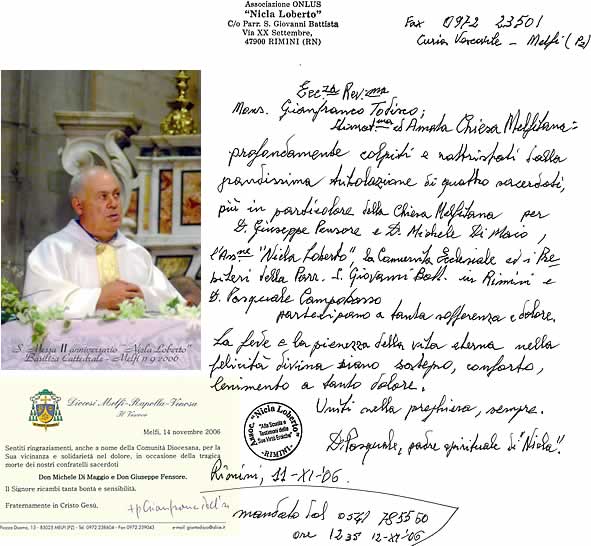 Associazione ONLUS
"Nicla Loberto"
C/o Parr. S. Giovanni Battista
Via XX Settembre,
47900 RIMINI (RN)
Fax 0972 23501
Curia Vescovile - Melfi (Pz)
Ecc.za Rev.ma
Mons. Gianfranco Todisco;
Stimat.ma ed Amata Chiesa Melfitana:
profondamente colpiti e rattristati dalla
grandissima tribolazione di quattro sacerdoti,
più in particolare della Chiesa Melfitana per
D. Giuseppe Pensore e D. Michele Di Maio,
l'Ass.ne "Nicla Loberto", la Comunità Ecclesiale ed i Pre-
sbiteri della Parr. S. Giovanni Batt. in Rimini e
D. Pasquale Campobasso
partecipano a tanta sofferenza e dolore.
La fede e la pienezza della vita eterna nella
felicità divina siano sostegno, conforto,
lenimento a tanto dolore.
Uniti nella preghiera, sempre.
D. Pasquale, padre spirituale di "Nicla".
Rimini, 11-XI-'06.
mandato dal 0541 785560
ore 12 35 12-XI-'06
Assoc. "Nicla Loberto"
"Alla Scuola e
Testimoni della
Sua Vita Eroica"
-RIMINI-
S. Messa II anniversario "Nicla Loberto"
Basilica Cattedrale - Melfi 11 9 2006
Diocesi Melfi-Rapolla-Venosa
Il Vescovo
Melfi, 14 novembre 2006
Sentiti ringraziamenti, anche a nome della Comunità Diocesana, per
la Sua vicinanza e solidarietà nel dolore, in occasione della tragica
morte dei nostri confratelli sacerdoti
Don Michele Di Maggio e Don Giuseppe Pensore.
Il Signore ricambi tanta bontà e sensibilità.
Fraternamente in Cristo Gesù,
+p Gianfranco
Piazza Duomo, 13 - 85025 MELFI (PZ) - Tel. 0972 238604 - Fax 0972 239043